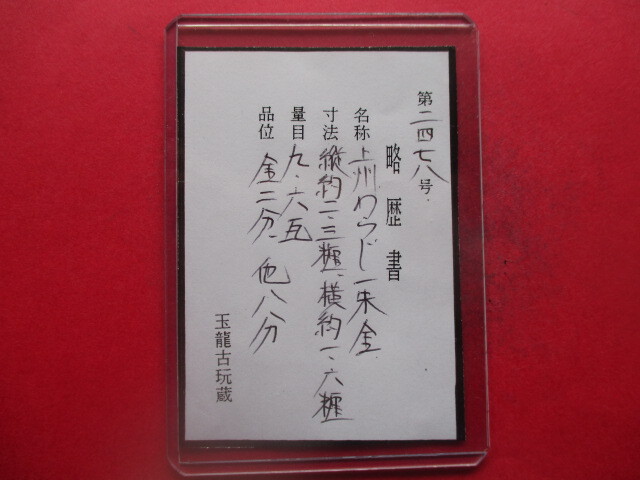 第二四七八号.
略歴書
名称 上州わらじ一朱金
寸法 縦約二・三糎、横約一・六糎
量目 九・六瓦
品位 金二分、他八分
玉龍古玩蔵